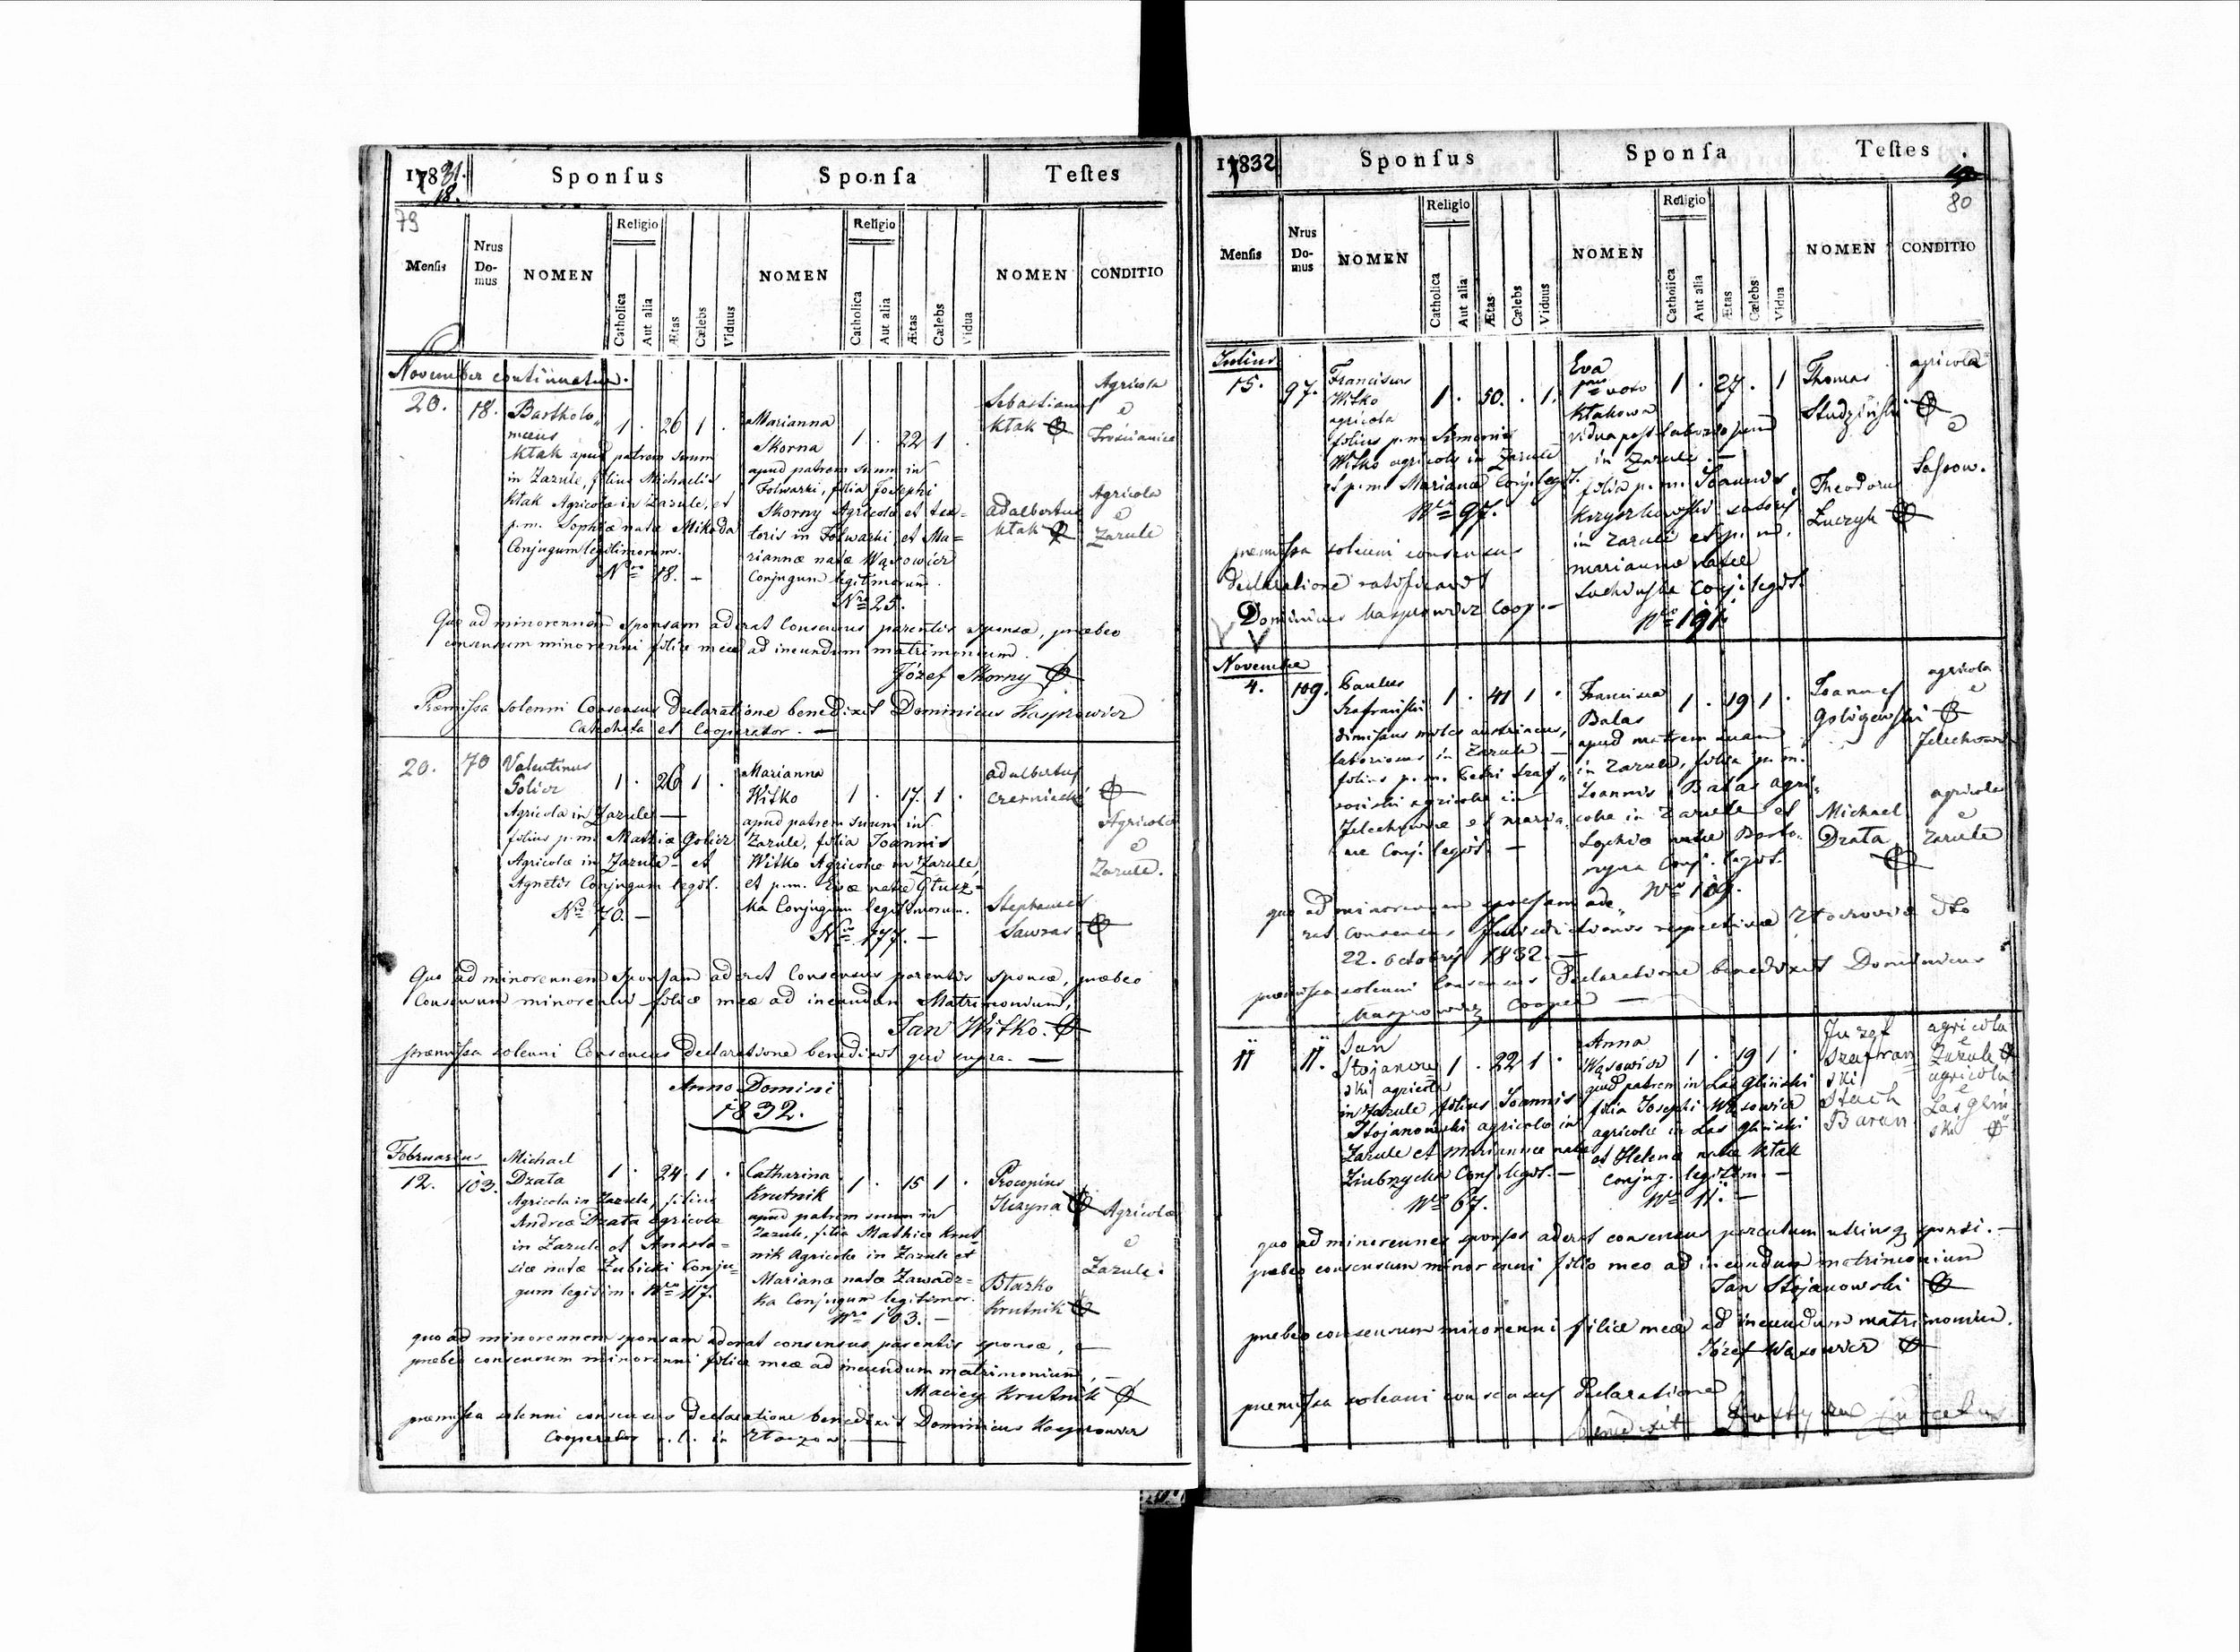 17831.
18.
Sponsus
Sponsa
Testes
79
Mensis
Nrus Do- mus
NOMEN
Religio
Catholica
Aut alia
Ætas
Cælebs
Viduus
NOMEN
Religio
Catholica
Aut alia
Ætas
Cælebs
Vidua
NOMEN
CONDITIO
November continuatur.
20. 18. Bartholo„
meus
1 . 26 1 .
Ktak apud patrem suum
in Zazule, filius Michaelis
Ktak Agricolæ in Zazule, et
p.m. Sophiæ natæ Mikoda
Conjugum legitimorum.
Nro 18. –
Marianna
Skorna
1 . 22 1 .
apud patrem suum in
Folwarki, filia Josephi
Skorny Agricolæ et tex=
toris in Folwarki, et Ma=
riannæ natæ Wąsowicz
Conjugum legitimorum.
Nro 25.
Sebastianus
Ktak
Agricola
e
Adalbertus
Ktak
Agricola
e
Zazule
Quo ad minorennem sponsam aderat Consensus parentis sponsæ, præbeo
consensum minorenni filiæ meæ ad ineundum matrimonium.
Józef Skorny
Præmissa solenni Consensus Declaratione benedixit Dominicus Kasprowicz
Catecheta et Cooperator. —
20. 70 Valentinus
Golicz
1 . 26 1 .
Agricola in Zazule —
filius p.m. Mathiæ Golicz
Agricolæ in Zazule – et
Agnetis Conjugum legit.
Nro 70. –
Marianna
Witko
1 . 17. 1 .
apud patrem suum in
Zazule, filia Joannis
Witko Agricolæ in Zazule,
et p.m. Evæ natæ Głusz=
ka Conjugum legitimorum.
Nro 177. —
Adalbertus
Czerniecki
Agricola
e
Zazule.
Stephanus
Sawras
Quo ad minorennem Sponsam aderat Consensus parentis sponsæ, præbeo
Consensum minorenni filiæ meæ ad ineundum Matrimonium,
Jan Witko.
præmissa solenni Consensus Declaratione benedixit qui supra. —
Anno Domini
1832.
Februarius
12. 103. Michael
Dzata
1 . 24 . 1 .
Agricola in Zazule, filius
Andreæ Dzata agricolæ
in Zazule et Anasta=
siæ natæ Zubicki Conju=
gum legitim. Nro 117.
Catharina
Krutnik
1 . 15 1 .
apud patrem suum in
Zazule, filia Mathiæ Krut=
nik Agricolæ in Zazule et
Marianæ natæ Zawadz=
ka Conjugum legitimor.
Nro 103. –
Procopius
Agricolæ
e
Zazule.
Błazko
Krutnik
quo ad minorennem sponsam aderat consensus parentis sponsæ, —
præbeo consensum minorenni filiæ meæ ad ineundum matrimonium, —
Maciej Krutnik
præmissa solenni consensus Declaratione benedixit Dominicus Kasprowicz
Cooperator r. l. in Złoczow. —
17832
Sponsus
Sponsa
Testes
80
Mensis
Nrus Do- mus
NOMEN
Religio
Catholica
Aut alia
Ætas
Cælebs
Viduus
NOMEN
Religio
Catholica
Aut alia
Ætas
Cælebs
Vidua
NOMEN
CONDITIO
Julius
15. 97. Franciscus
Witko
1 . 50. . 1.
agricola
filius p.m. Simeonis
Witko agricolæ in Zazule
et p.m. Marianæ Conj. legit.
Nro 97.
Eva
voto
1 . 27. 1
Ktakowa
in Zazule. —
filia p.m. Joannis
in Zazule et p.m.
mariannæ natæ
Conj. legit.
Nro 191.
Thomas
Studziński
agricola
e
Sassow.
Theodorus
Łuczyk
premissa solenni consensus
declaratione
Dominicus Kasprowicz Coop. —
Novembre
4. 109. Paulus
Szafrański
1 . 41 1 .
dimissus miles austriacus,
laboriosus in Zazule. —
filius p.m. Petri Szaf„
rański agricolæ in
Jelechowce et Maria„
næ Conj. legit. —
Francisca
Balas
1 . 19 1 .
apud matrem suam
in Zazule, filia p.m.
Joannis Balas agri„
colæ in Zazule et
Sophiæ natæ
Conj. legit.
Nro 109.
Joannes
Gołogowski
agricola
e
Michael
Dzata
agricola
e
Zazule
quo ad minorennem sponsam ade„
rat Consensus Jurisdictionis respectivæ Złoczoviæ dto
22. octobris 1832. —
premissa solenni Consensus Declaratione benedixit Dominicus
Kasprowicz Cooper —
11 11. Jan
Stojanow
ski agricola
1 . 22 1 .
in Zazule, filius Joannis
Stojanowski agricolæ in
Zazule et Mariannæ natæ
Conj. legit. —
Nro 67.
Anna
Wąsowicz
1 . 19 1 .
apud patrem in Las gliński
filia Josephi Wąsowicz
agricolæ in Las gliński
et Helenæ natæ Ktak
conjug. legitim. —
Nro 11. –
Juzef
Szafran
ski
agricola
e
Zazule
Stach
Baran
agricola
e
Las gliń
ski
quo ad minorennes sponsos aderat consensus parentum utriusq sponsi. —
præbeo consensum minorenni filio meo ad ineundum matrimonium
Jan Stojanowski
præbeo consensum minorenni filiæ meæ ad ineundum matrimonium.
Józef Wąsowicz
premissa solenni consensus declaratione
benedixit